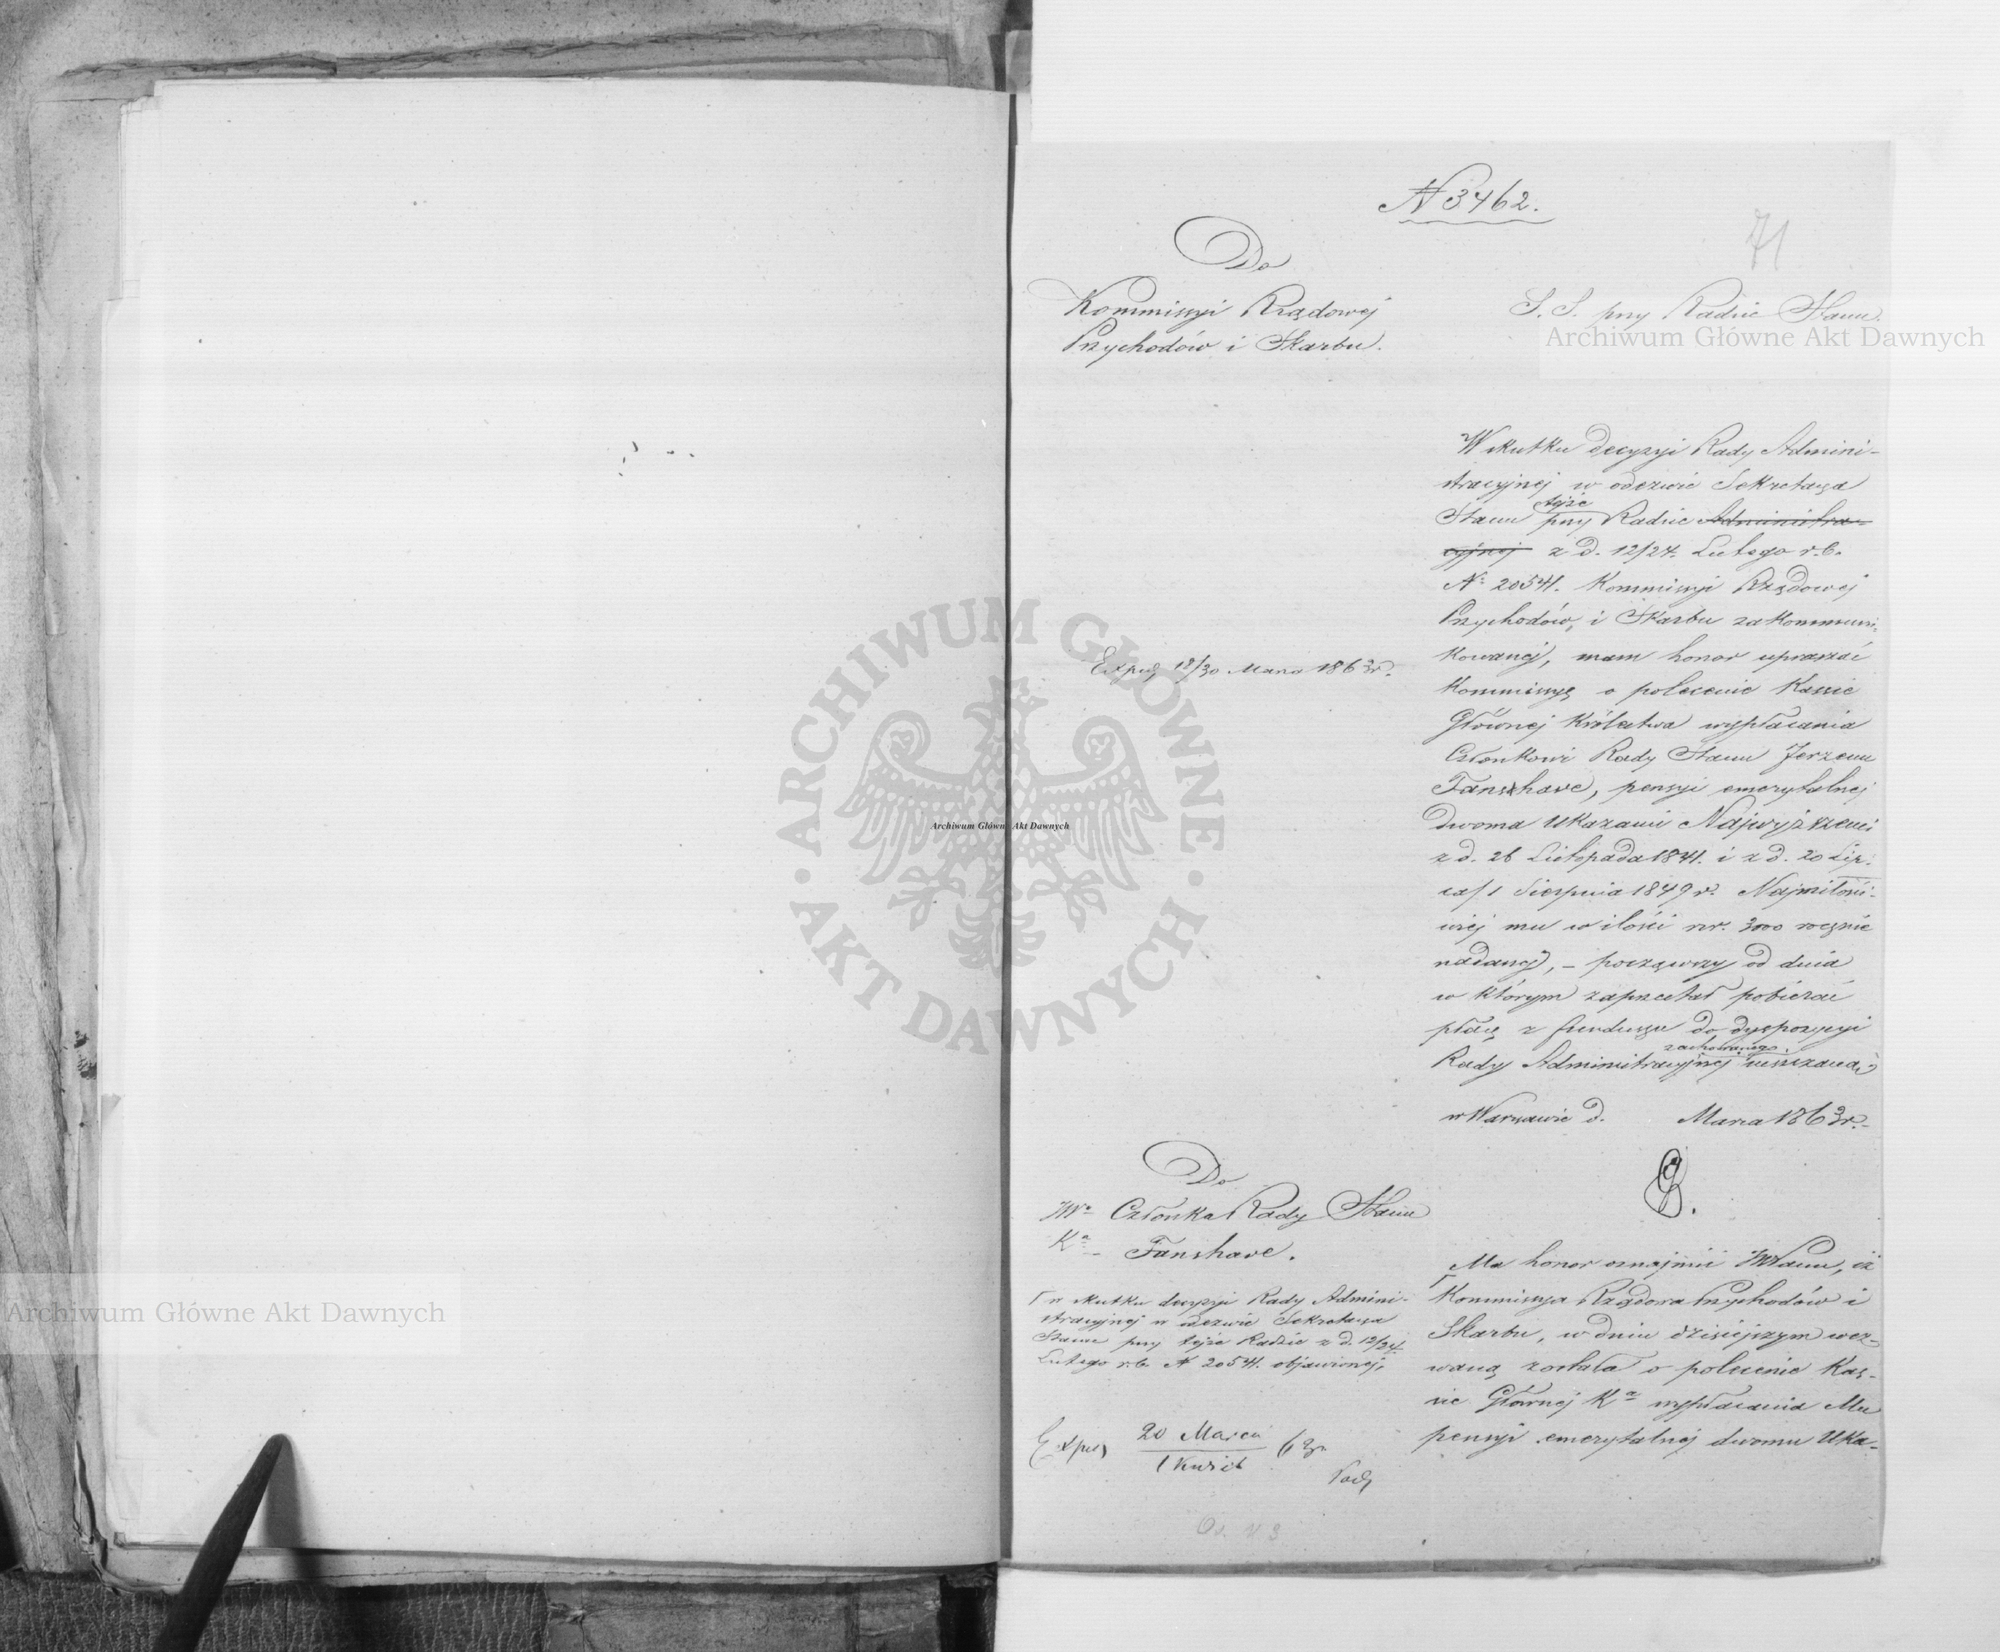 N 3462.
71
Do
Kommissyi Rządowej
Przychodów i Skarbu.
S. S. przy Radzie Stanu.
Archiwum Główne Akt Dawnych
W skutku decyzyi Rady Admini-
stracyjnej w odezwie Sekretarza
Stanu przy tejże Radzie Administra-
cyjnej z d. 12/24. Lutego r.b.
N° 20541. Kommissyi Rządowej
Przychodów i Skarbu zakommuni-
kowanej, mam honor upraszać
Kommissyę o polecenie Kassie
Głównej Królestwa wypłacania
Członkowi Rady Stanu Jerzemu
Fanshave, pensyi emerytalnej
dwoma Ukazami Najwyższemi
z d. 26 Listopada 1841. i z d. 20 Lip-
ca/1 Sierpnia 1849 r. Najmiłości-
wiej mu w ilości rsr. 3000 rocznie
nadanej, – począwszy od dnia
w którym zaprzestał pobierać
płacę z funduszu do dyspozycyi
zachowanego
Rady Administracyjnej
w Warszawie d. Marca 1863 r.
Exped. 18/30 Marca 1863 r.
ARCHIWUM GŁÓWNE
AKT DAWNYCH
Archiwum Główne Akt Dawnych
Do
JWo Członka Rady Stanu
Ka Fanshave.
w skutku decyzyi Rady Admini-
stracyjnej w odezwie Sekretarza
Stanu przy tejże Radzie z d. 12/24.
Lutego r.b. N 20541. objawionej,
Ma honor oznajmić JWPanu, iż
Kommissya Rządowa Przychodów i
Skarbu, w dniu dzisiejszym wez-
waną została o polecenie Kas-
sie Głównej Ka wypłacania Mu
pensyi emerytalnej dwoma Uka-
Exped 20 Marca
1 Kwiet 63 r
Archiwum Główne Akt Dawnych